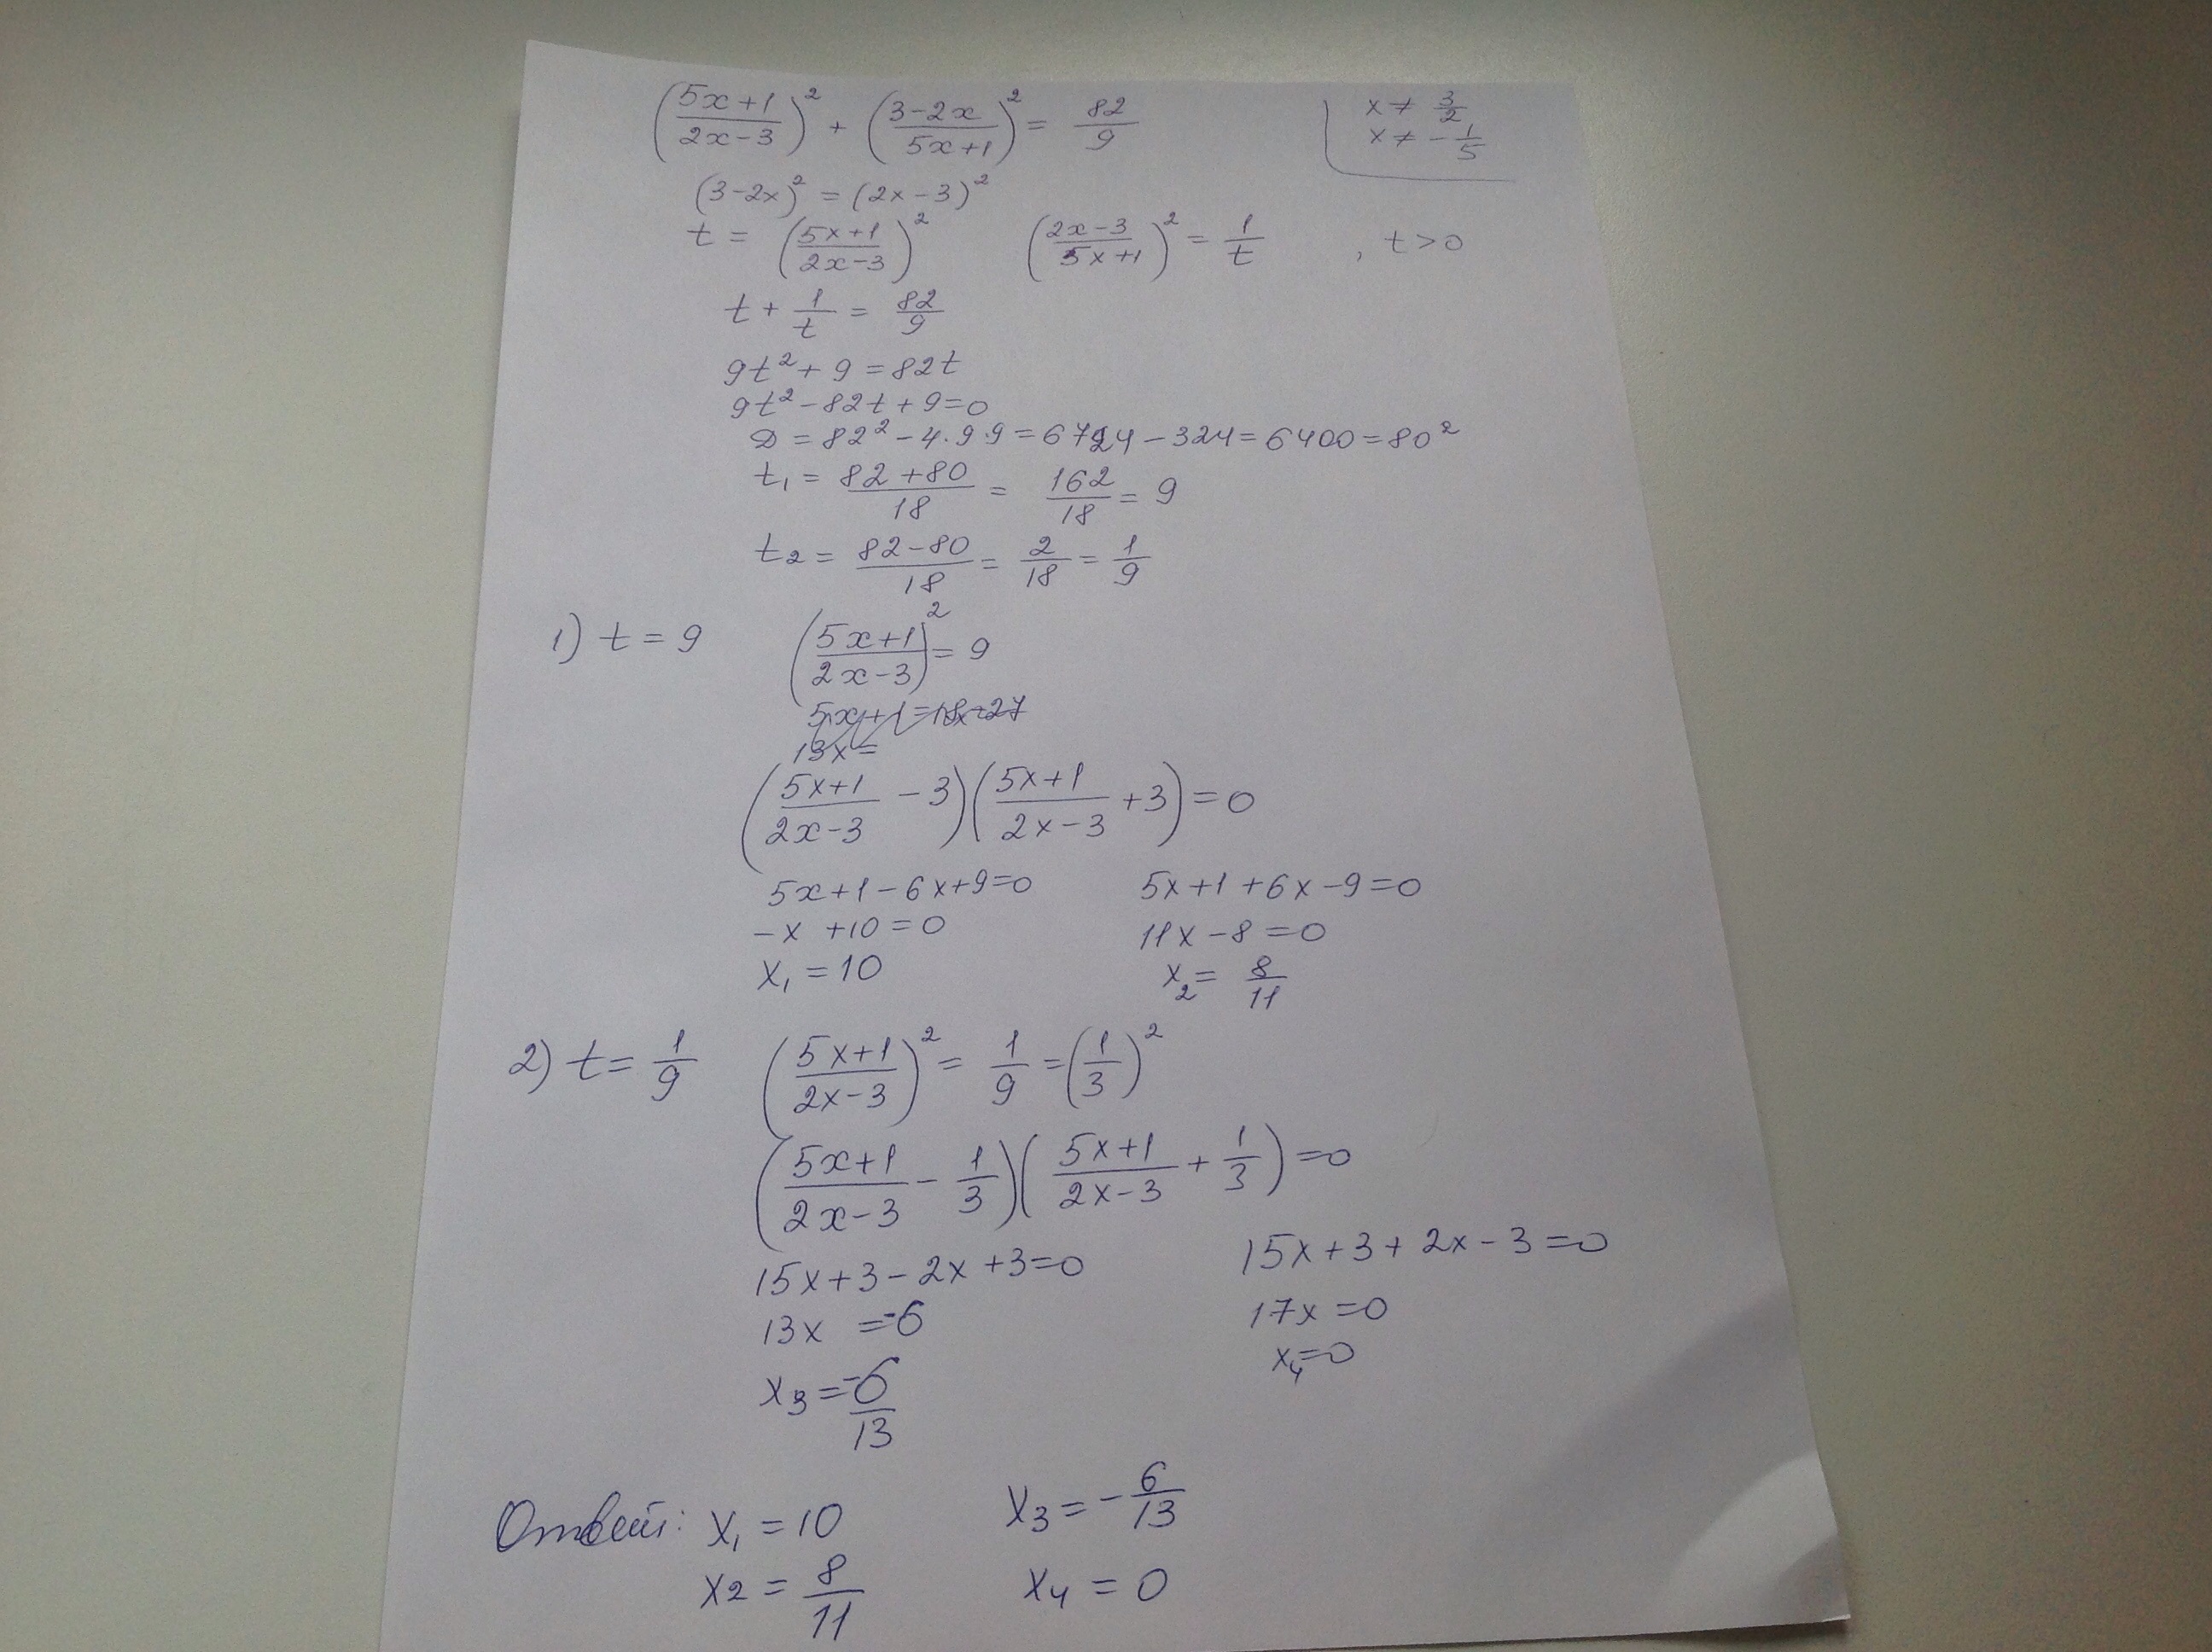 ((5x+1)/(2x-3))² + ((3-2x)/(5x+1))² = 82/9
x ≠ 3/2
x ≠ -1/5
(3-2x)² = (2x-3)²
t = ((5x+1)/(2x-3))² ((2x-3)/(5x+1))² = 1/t , t>0
t + 1/t = 82/9
9t² + 9 = 82t
9t² - 82t + 9 = 0
D = 82² - 4·9·9 = 6724 - 324 = 6400 = 80²
t₁ = (82+80)/18 = 162/18 = 9
t₂ = (82-80)/18 = 2/18 = 1/9
1) t = 9 ((5x+1)/(2x-3))² = 9
5x+1=18x-27
13x=
((5x+1)/(2x-3) - 3)((5x+1)/(2x-3) + 3) = 0
5x+1-6x+9=0 5x+1+6x-9=0
-x+10=0 11x-8=0
x₁ = 10 x₂ = 8/11
2) t = 1/9 ((5x+1)/(2x-3))² = 1/9 = (1/3)²
((5x+1)/(2x-3) - 1/3)((5x+1)/(2x-3) + 1/3) = 0
15x+3-2x+3=0 15x+3+2x-3=0
13x = -6 17x = 0
x₃ = -6/13 x₄ = 0
Ответ: x₁ = 10 x₃ = -6/13
x₂ = 8/11 x₄ = 0